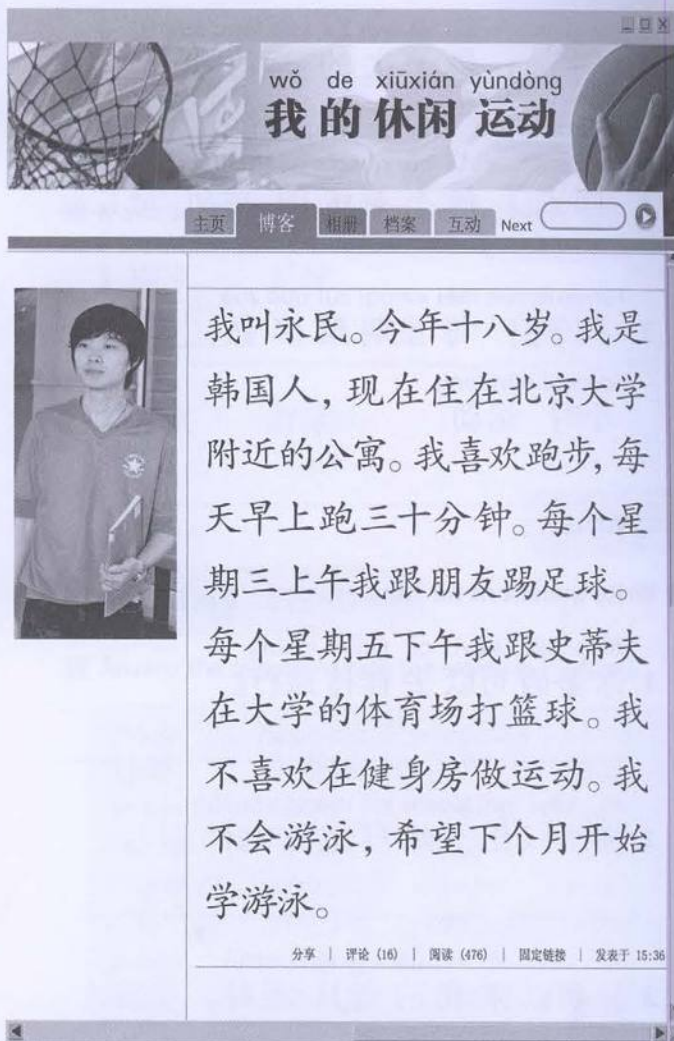 wǒ de xiūxián yùndòng
我的休闲运动
主页 博客 相册 档案 互动 Next
我叫永民。今年十八岁。我是
韩国人，现在住在北京大学
附近的公寓。我喜欢跑步，每
天早上跑三十分钟。每个星
期三上午我跟朋友踢足球。
每个星期五下午我跟史蒂夫
在大学的体育场打篮球。我
不喜欢在健身房做运动。我
不会游泳，希望下个月开始
学游泳。
分享 | 评论 (16) | 阅读 (476) | 固定链接 | 发表于 15:36